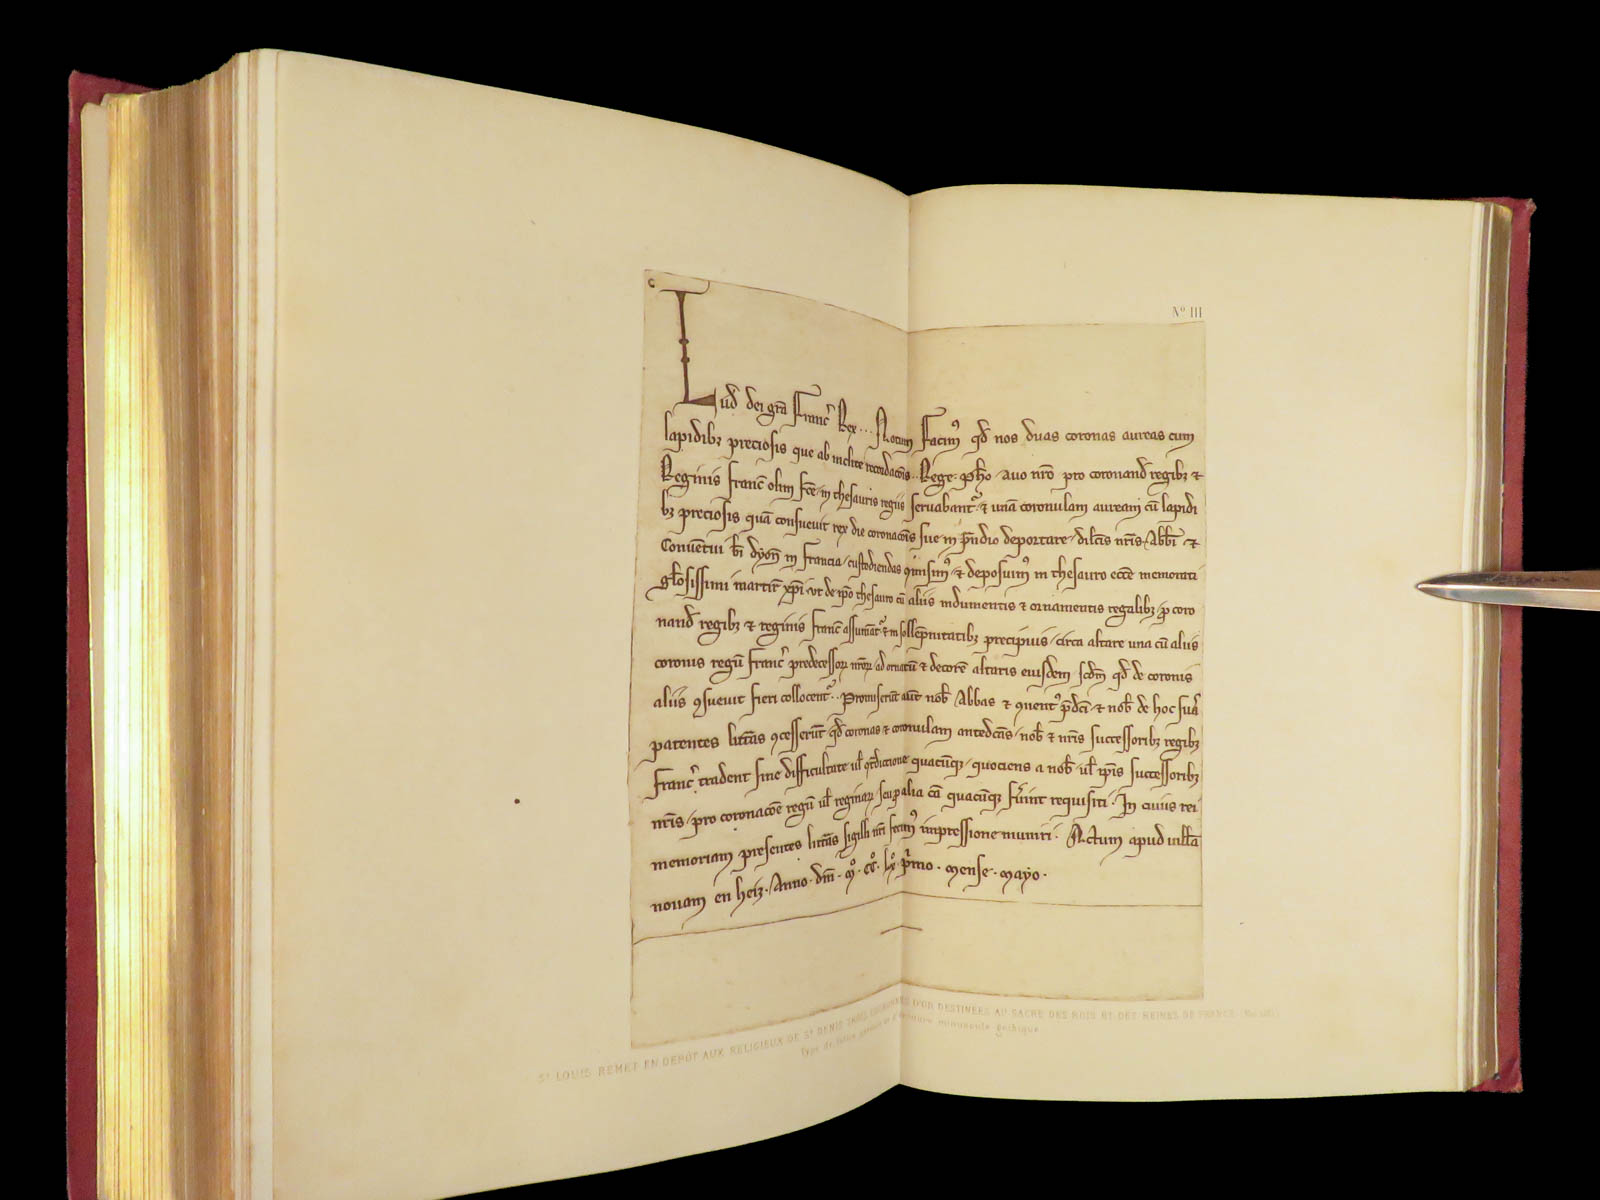 Nº III
Lud dei gra Franc Rex... Notum Facim qd nos duas coronas aureas cum
lapidibz preciosis que ab inclite recordacois.. Rege. Pho. auo nro pro coronand regibz &
Reginis franc olim fce. in thesauris regiis seruabant. & una coronulam auream cu lapidi
bz preciosis qua consueuit rex die coronacois sue in pndio deportare. dilcis nris. Abbi &
Conuetui bi dyon in francia. custodiendas & deposuim in thesauro ecce memorati
glosissimi martir xpi. vt de ipo thesauro cu aliis indumentis & ornamentis regalibz p coro
nand regibz & reginis franc assumat & in sollepnitatibz precipuis. circa altare una cu aliis
coronis regu franc predecessor nror ad ornatu & decore altaris eiusdem scdm qd de coronis
aliis 9sueuit fieri collocent.. Promiserut aut nob Abbas & 9uent pdci & nob de hoc sua
patentes litras 9cesserut qd coronas & coronulam antedcas. nob & nris successoribz regibz
franc. tradent sine difficultate ul 9tdictione quacuqz. quociens a nob. ul ipis successoribz
nris. pro coronacoe regu ul reginar seu p alia ca quacuqz fuint requisiti. In cuius rei
memoriam presentes litras sigilli nri fecim impressione muniri. Actum apud uilla
nouam en heiz. Anno. dni. mº. ccº. lxº. pmo. mense. mayo.
Sᵗ LOUIS REMET EN DÉPÔT AUX RELIGIEUX DE Sᵗ DENIS TROIS COURONNES D'OR DESTINÉES AU SACRE DES ROIS ET DES REINES DE FRANCE.
minuscule gothique